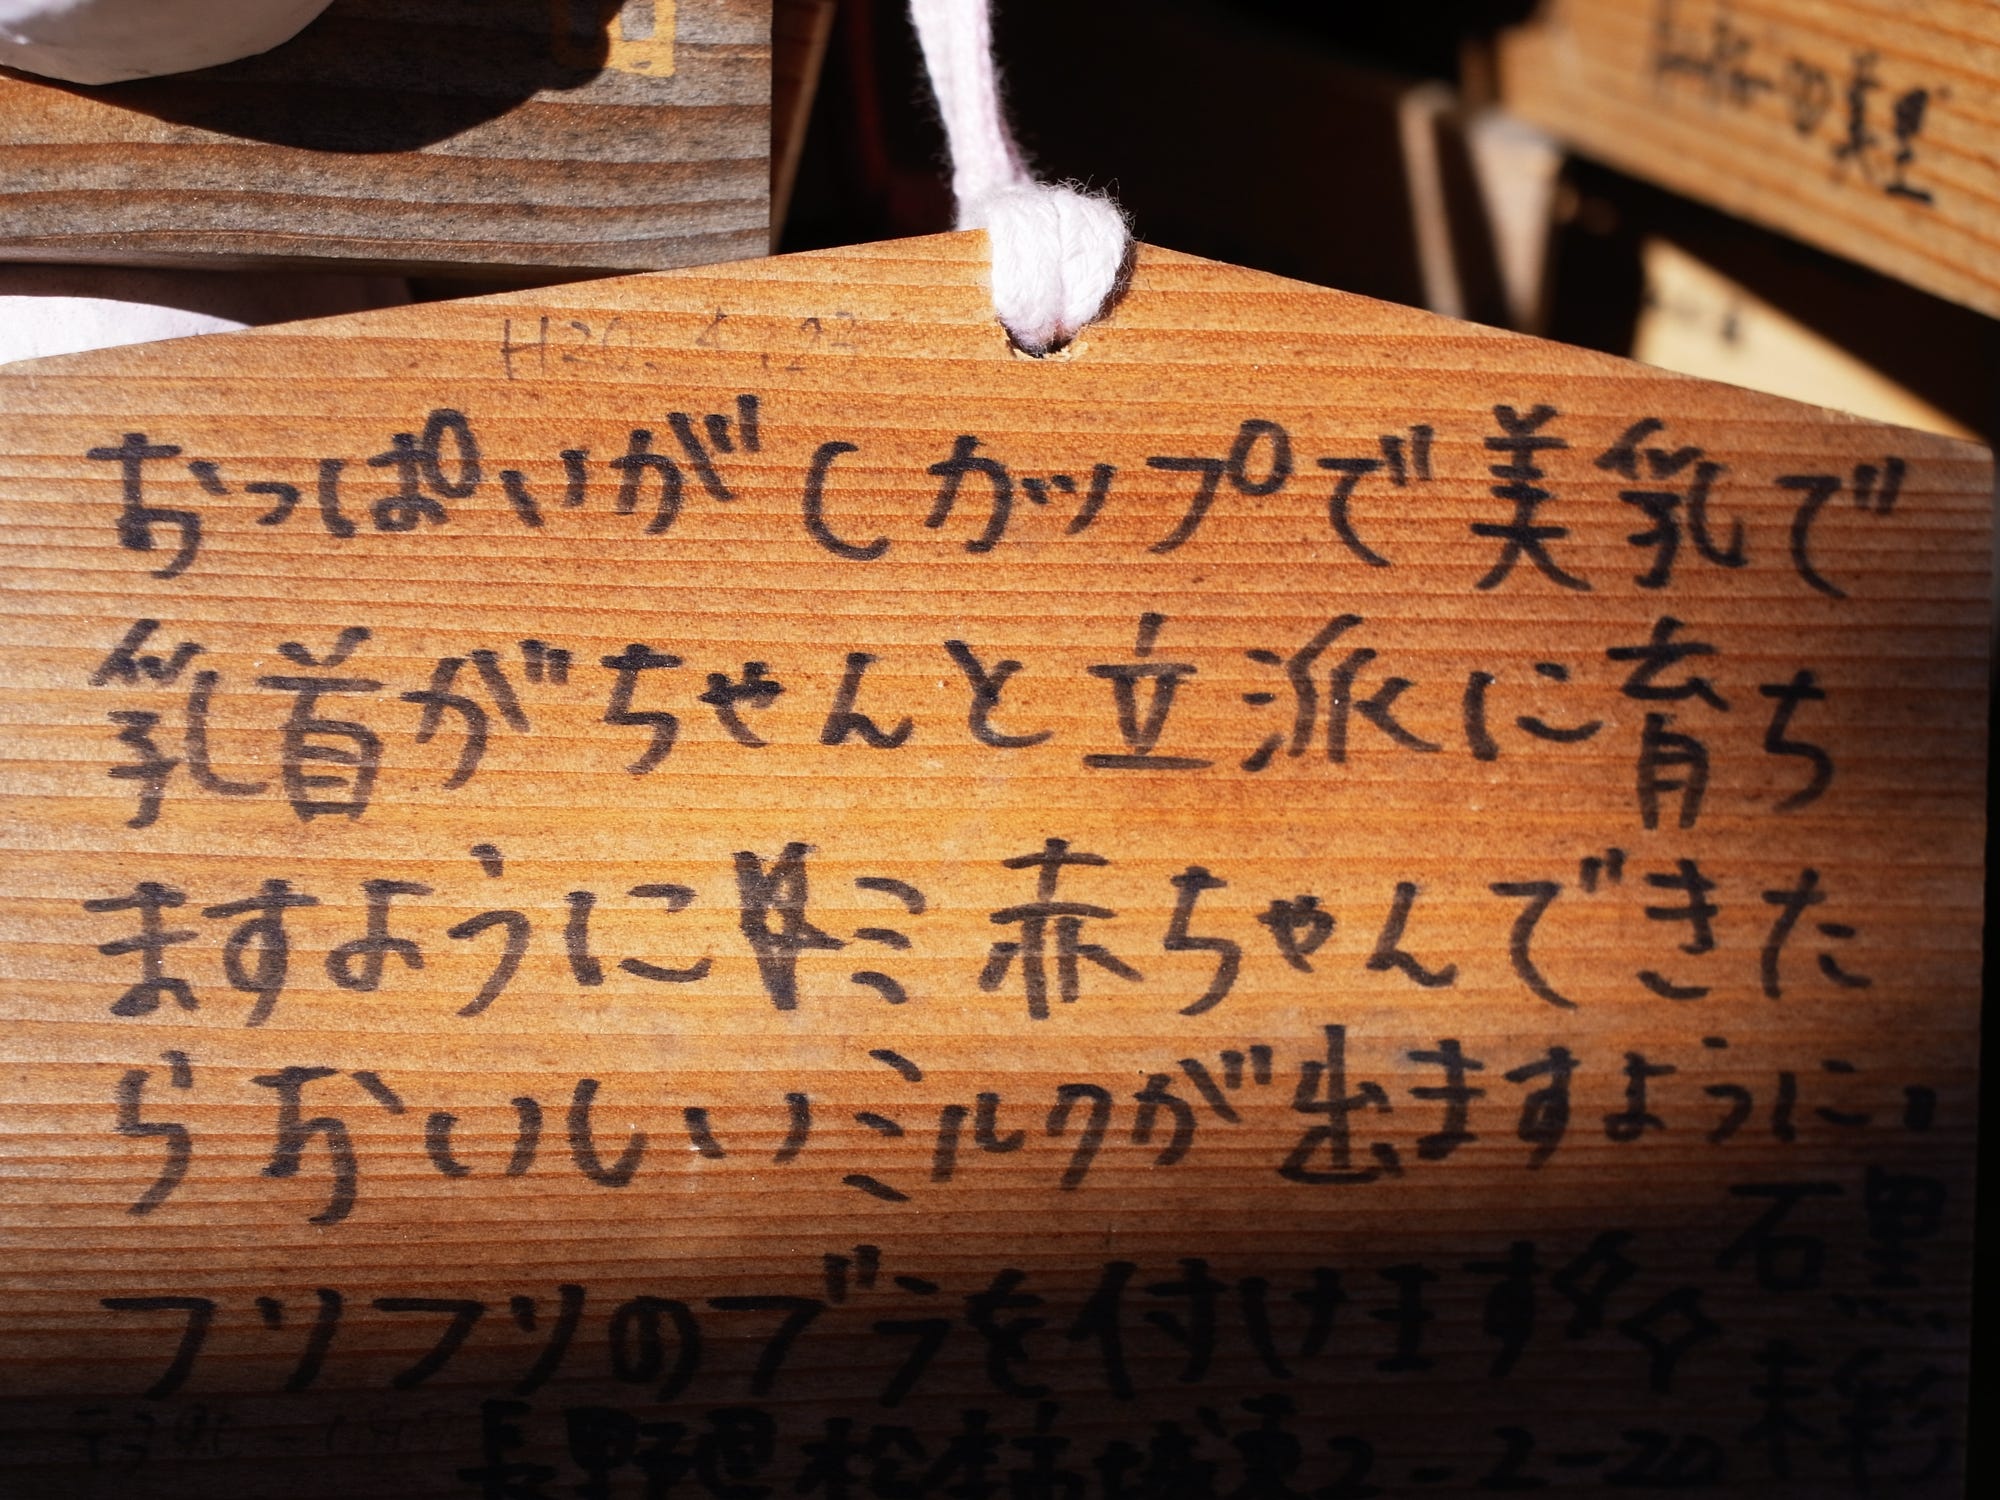 H20.4.23
おっぱいがCカップで美乳で
乳首がちゃんと立派に育ち
ますように 赤ちゃんできた
らおいしいミルクが出ますように。
フリフリのブラを付けます☆☆
長野県松本市城東2-2-20
美里